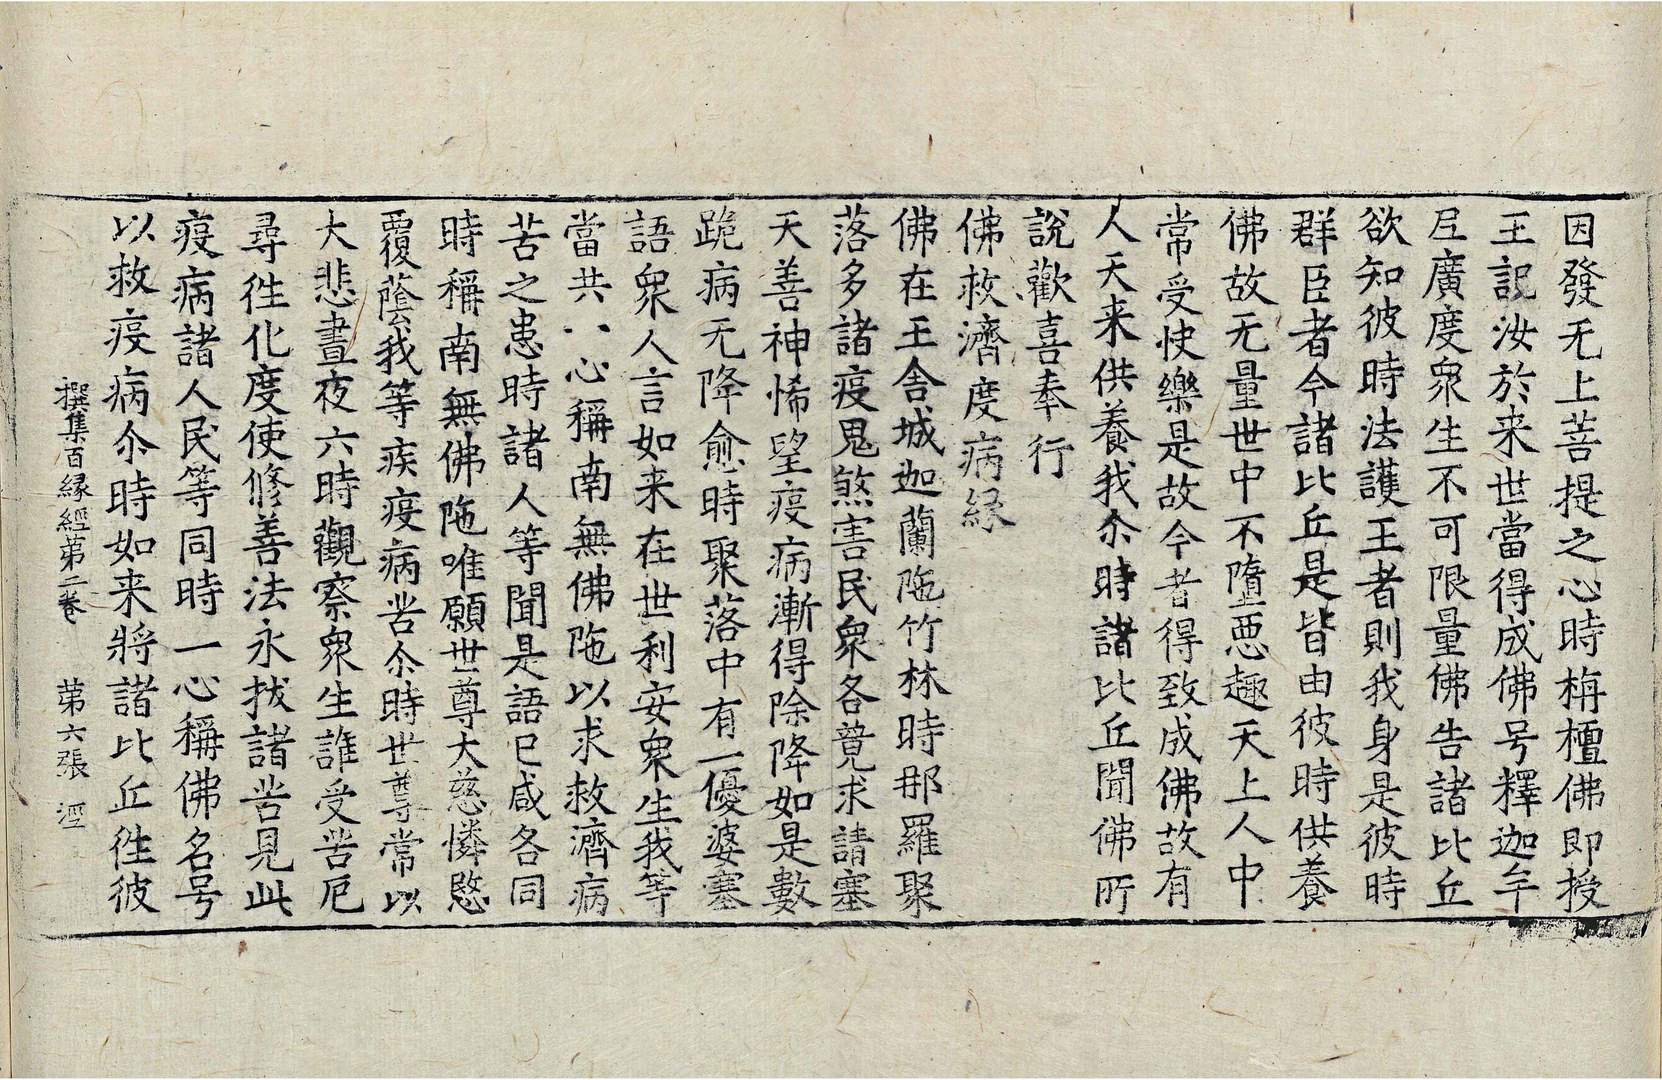 因發无上菩提之心時栴檀佛即授
王記汝於来世當得成佛号釋迦牟
尼廣度衆生不可限量佛告諸比丘
欲知彼時法護王者則我身是彼時
群臣者今諸比丘是皆由彼時供養
佛故无量世中不墮惡趣天上人中
常受快樂是故今者得致成佛故有
人天来供養我尒時諸比丘聞佛所
說歡喜奉行
佛救濟度病緣
佛在王舍城迦蘭陁竹林時那羅聚
落多諸疫鬼煞害民衆各競求請塞
天善神悕望疫病漸得除降如是數
跪病无降愈時聚落中有一優婆塞
語衆人言如来在世利安衆生我等
當共八心稱南無佛陁以求救濟病
苦之患時諸人等聞是語已咸各同
時稱南無佛陁唯願世尊大慈憐愍
覆蔭我等疾疫病苦尒時世尊常以
大悲晝夜六時觀察衆生誰受苦厄
尋徃化度使修善法永拔諸苦見此
疫病諸人民等同時一心稱佛名号
以救疫病尒時如来將諸比丘徃彼
撰集百緣經第二卷 第六張 逕